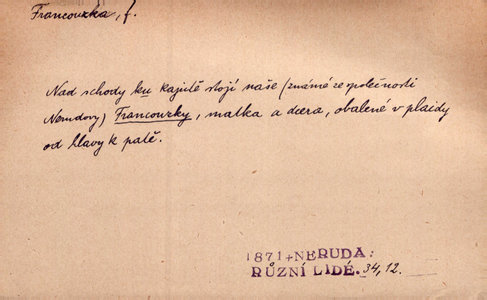 Francouzka, f.
Nad schody ku kajutě stojí naše (známé ze společnosti
Nerudovy) Francouzky, matka a dcera, obalené v plaidy
od hlavy k patě.
1871 + NERUDA:
RŮZNÍ LIDÉ. 34, 12.